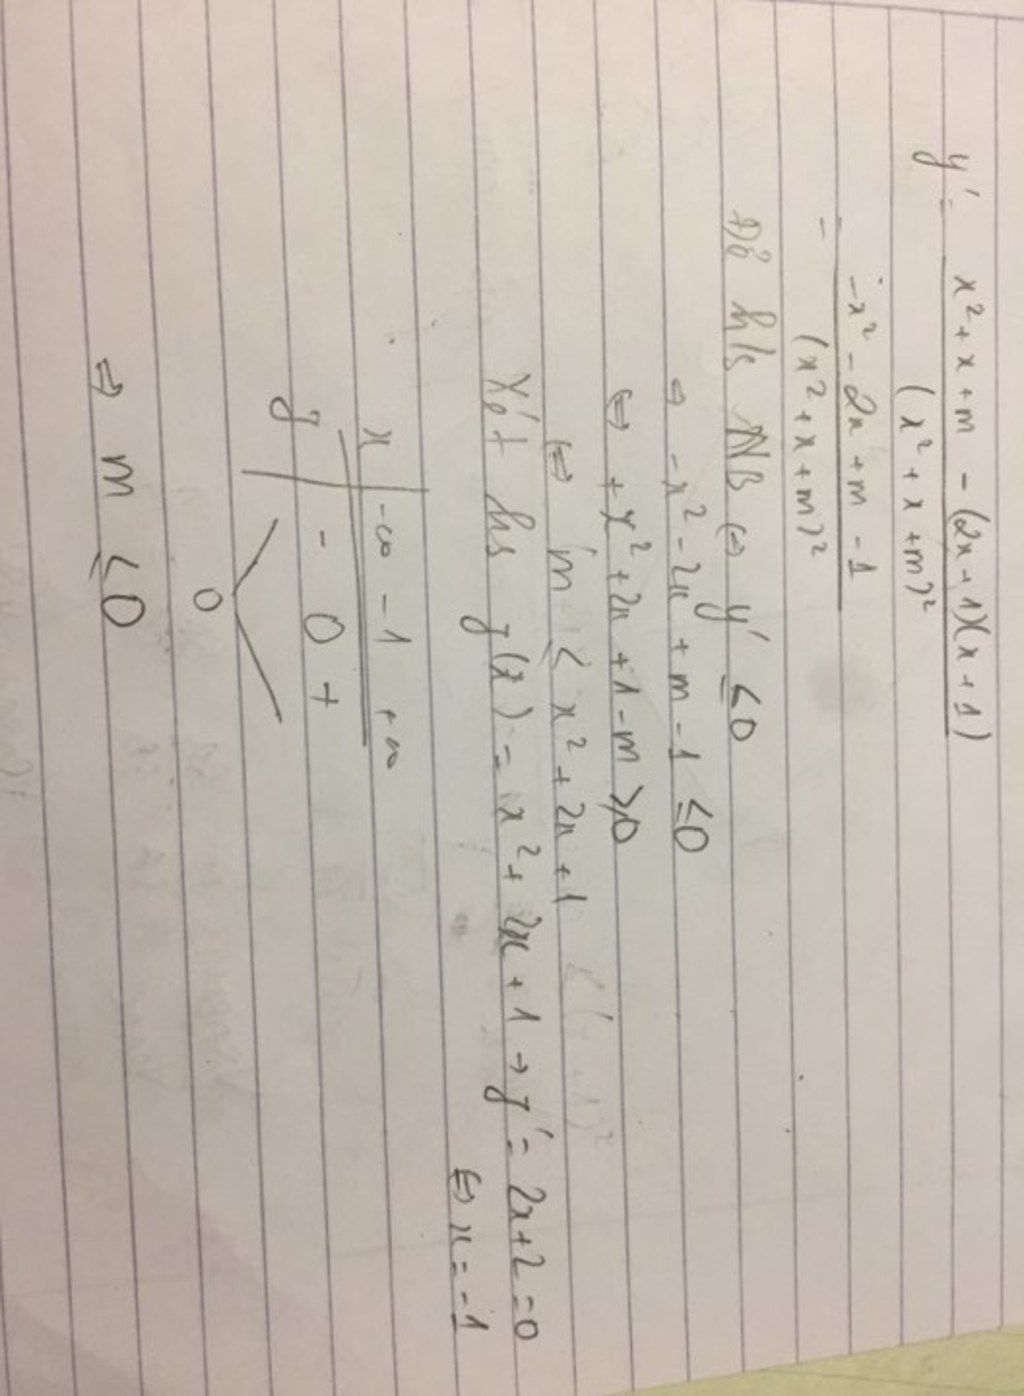 y' = x² + x + m - (2x + 1)(x + 1)
(x² + x + m)²
= -x² - 2x + m - 1
(x² + x + m)²
Để h/s NB ⇔ y' ≤ 0
⇒ -x² - 2x + m - 1 ≤ 0
⇔ + x² + 2x + 1 - m ≥ 0
⇔ m ≤ x² + 2x + 1
Xét hs g(x) = x² + 2x + 1 → g' = 2x + 2 = 0
⇔ x = -1
x -∞ -1 +∞
g - 0 +
0
⇒ m ≤ 0